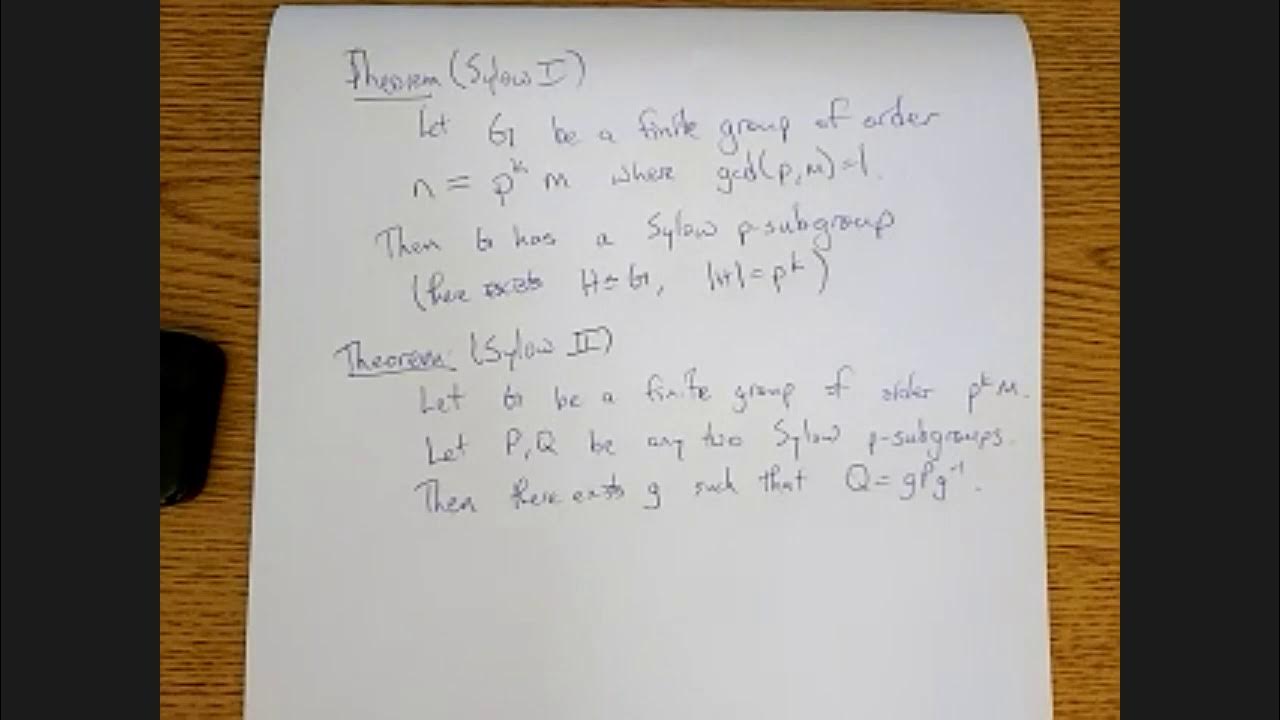 Theorem (Sylow I)
Let G be a finite group of order
n = p^k m where gcd(p,m)=1.
Then G has a Sylow p-subgroup
(there exists H ≤ G, |H| = p^k)
Theorem: (Sylow II)
Let G be a finite group of order p^k m.
Let P,Q be any two Sylow p-subgroups.
Then there exists g such that Q = gPg^-1.